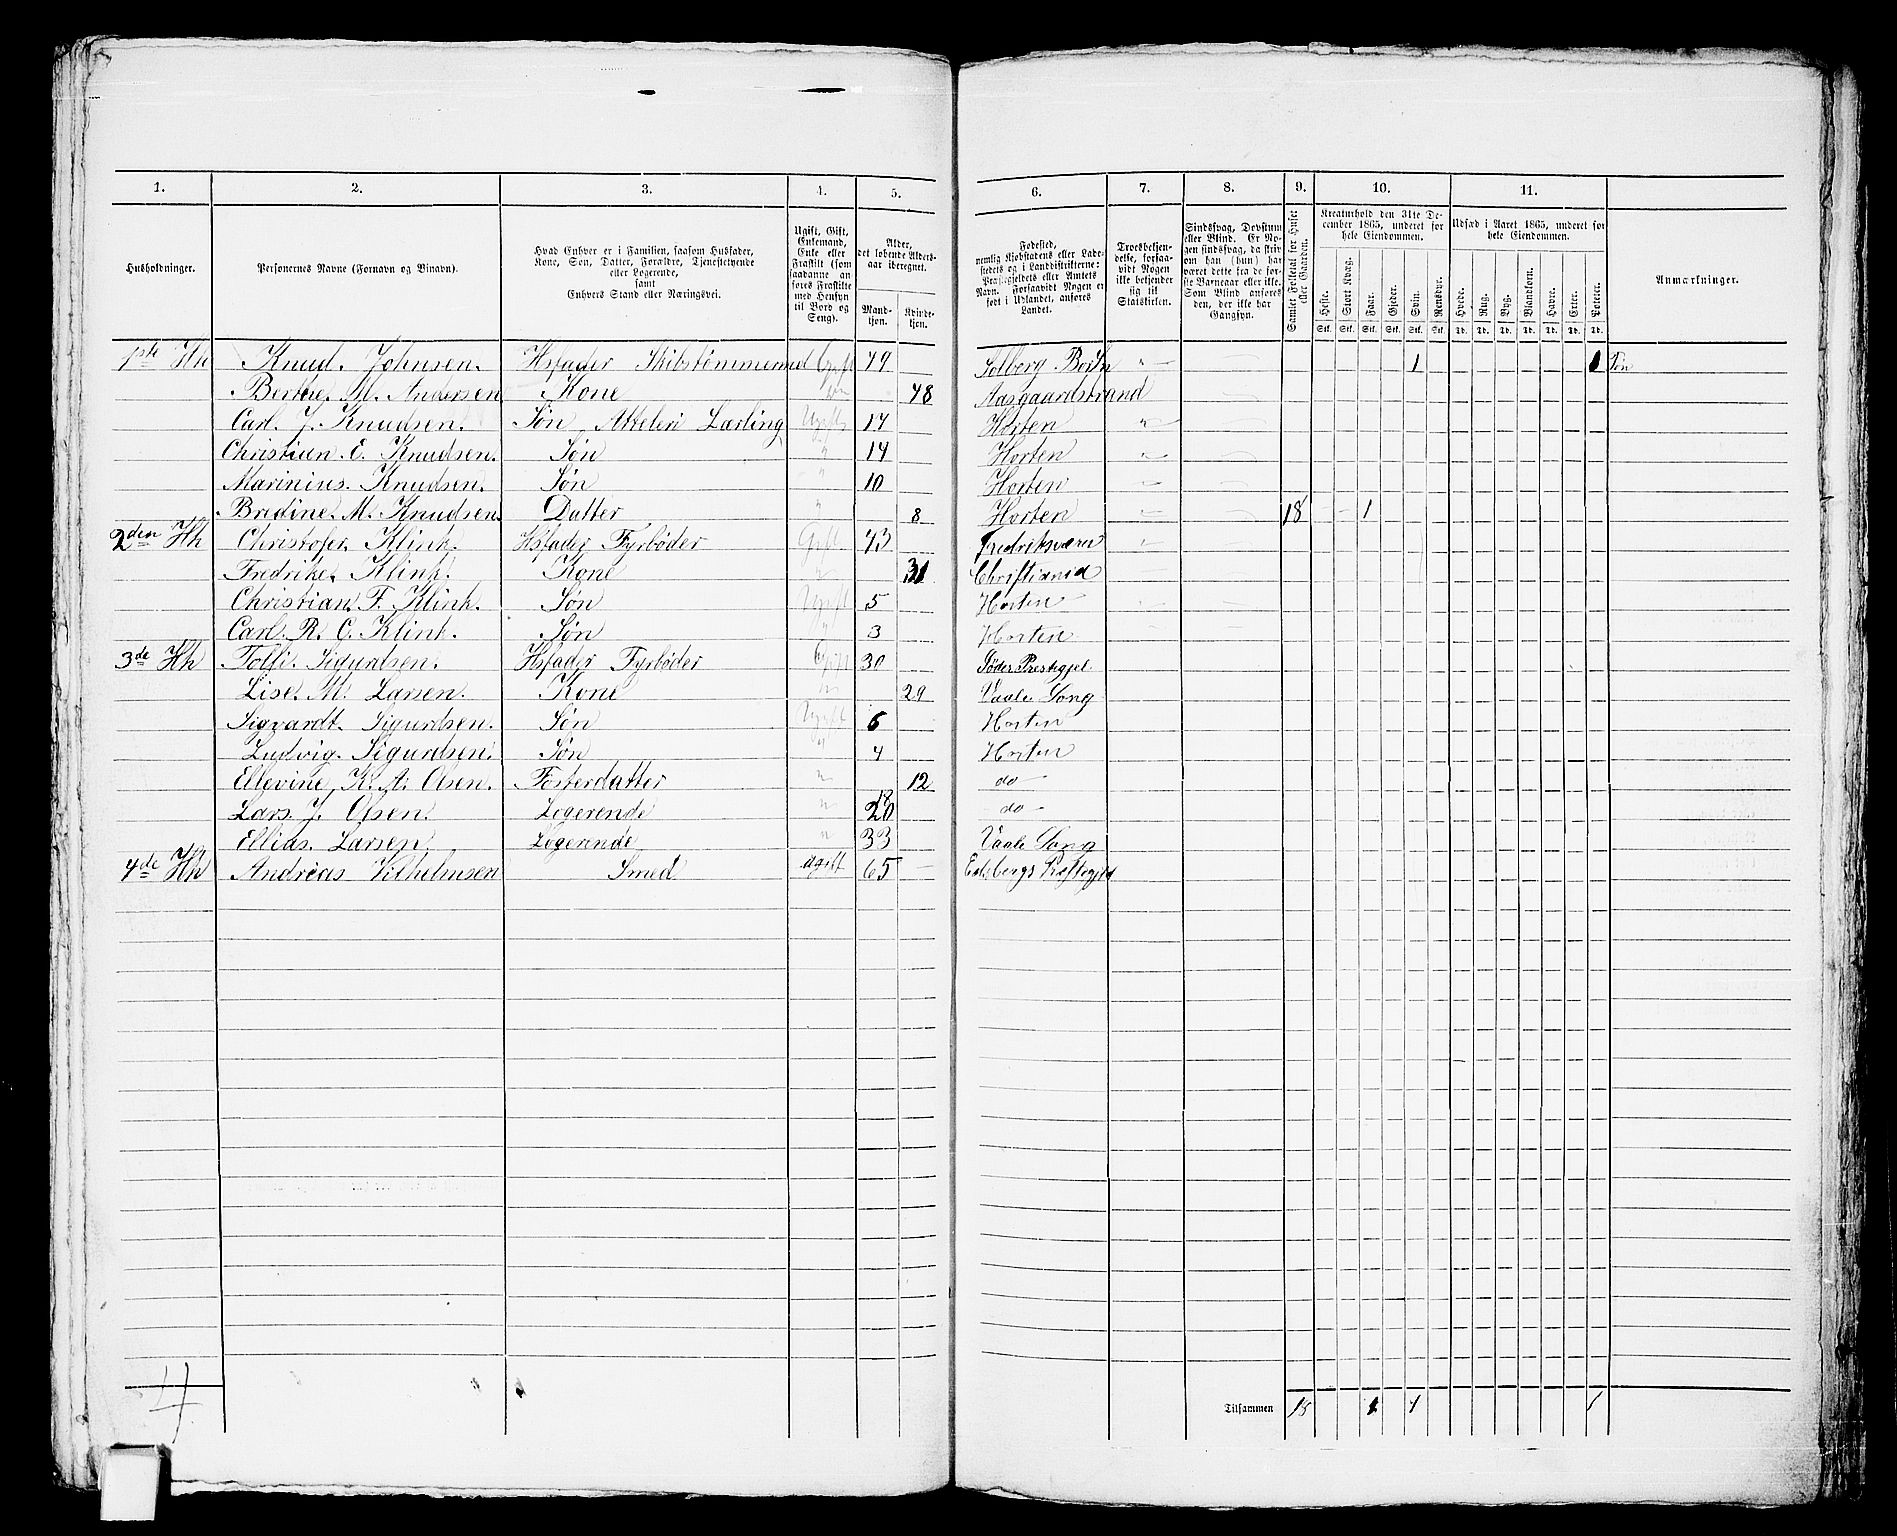 1. 2. 3. 4. 5. 6. 7. 8. 9. 10. 11.
Husholdninger.
Personernes Navne (Fornavn og Binavn).
Hvad Enhver er i Familien, saasom Husfader,
Kone, Søn, Datter, Forældre, Tjenestetyende
eller Logerende,
samt
Enhvers Stand eller Næringsvei.
Ugift, Gift,
Enkemand,
Enke eller
Fraskilt (som
saadanne an-
føres Fraskilte
med Hensyn
til Bord og
Seng).
Alder,
det løbende Alders-
aar iberegnet.
Mand-
kjøn.
Kvinde-
kjøn.
Fødested,
nemlig Kjøbstadens eller Lade-
stedets og i Landdistrikterne:
Præstegjeldets eller Amtets
Navn. Forsaavidt Nogen er
født i Udlandet, anføres
Landet.
Troesbekjen-
delse, forsaa-
vidt Nogen
ikke bekjender
sig til
Statskirken.
Sindssvag, Døvstum
eller Blind. Er No-
gen sindssvag, da skriv
om han (hun) har
været dette fra de før-
ste Barneaar eller ikke.
Som Blind anføres
den, der ikke har
Gangsyn.
Samlet Folketal for Huset
eller Gaarden.
Kreaturhold den 31te De-
cember 1865, underet for
hele Eiendommen.
Heste. Stort Kvæg. Faar. Gjeder. Svin. Rensdyr.
Stk. Stk. Stk. Stk. Stk. Stk.
Udsæd i Aaret 1865, underet for
hele Eiendommen.
Hvede. Rug. Byg. Blandkorn. Havre. Erter. Poteter.
Td. Td. Td. Td. Td. Td. Td.
Anmærkninger.
1ste Hh Knud. Johnsen. Hsfader Skibstømmermd Gift 49 Solberg 1 1 Tøn
Berthe. M. Andersen Kone 48 Aasgaardstrand
Carl. J. Knudsen. Søn, Atteleri Lærling Ugift 17 Horten
Christian. E. Knudsen. Søn " 14 Horten
Marinius. Knudsen. Søn " 10 Horten
Bredine. M. Knudsen. Datter " 8 Horten 18 1
2den Hh Christofer. Klink. Hsfader Fyrbøder Gift 43 Fredriksværn
Fredrike. Klink. Kone " 31 Christiania
Christian. F. Klink. Søn Ugift 5 Horten
Carl. R. C. Klink. Søn " 3 Horten
3de Hh Tolli. Sigurdsen. Hsfader Fyrbøder Gift 30 Prestegjel.
Lise. M. Larsen. Kone " 29 Vaale Song
Sigvardt. Sigurdsen. Søn Ugift 6 Horten
Ludvig. Sigurdsen. Søn " 4 Horten
Ellevine, K. A. Olsen. Fosterdatter " 12 do
Lars. J. Olsen. Logerende " 18 20 do
Ellias. Larsen. Logerende " 33 Vaale Song
4de Hh Andreas Vilhelmsen Smed Ugift 65 Eidsbergs Prestegjeld
4
Tilsammen 18 1 1 1